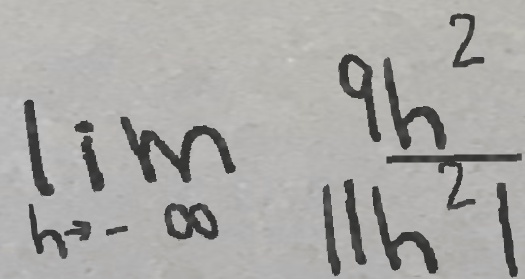 lim 9h²
h→-∞ 11h²1